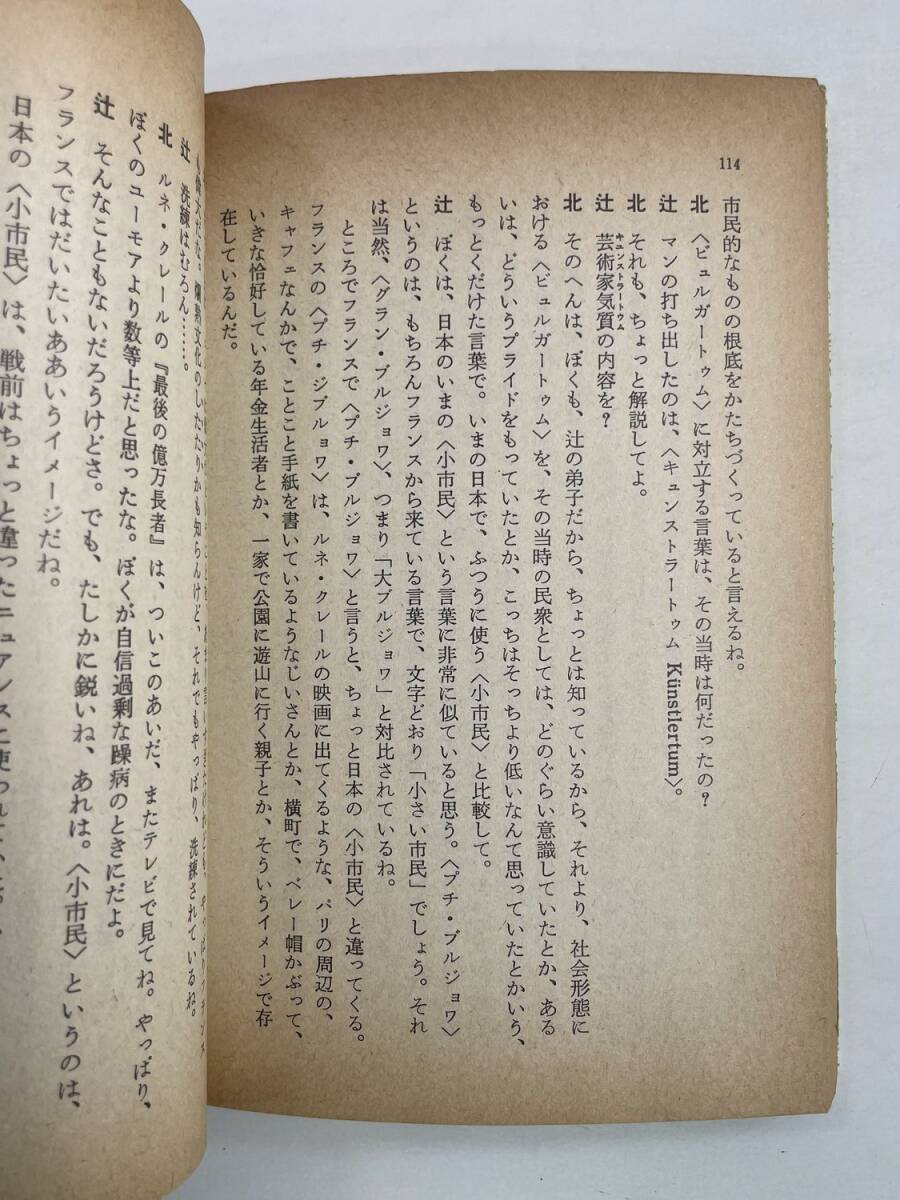 114
市民的なものの根底をかたちづくっていると言えるね。
北 〈ビュルガートゥム〉に対立する言葉は、その当時は何だったの?
辻 マンの打ち出したのは、〈キュンストラートゥム Künstlertum〉。
北 それも、ちょっと解説してよ。
辻 芸術家気質の内容を?
キュンストラートウム
北 そのへんは、ぼくも、辻の弟子だから、ちょっとは知っているから、それより、社会形態に
おける〈ビュルガートゥム〉を、その当時の民衆としては、どのぐらい意識していたとか、ある
いは、どういうプライドをもっていたとか、こっちはそっちより低いなんて思っていたとかいう、
もっとくだけた言葉で。いまの日本で、ふつうに使う〈小市民〉と比較して。
辻 ぼくは、日本のいまの〈小市民〉という言葉に非常に似ていると思う。〈プチ・ブルジョワ〉
というのは、もちろんフランスから来ている言葉で、文字どおり「小さい市民」でしょう。それ
は当然、〈グラン・ブルジョワ〉、つまり「大ブルジョワ」と対比されているね。
ところでフランスで〈プチ・ブルジョワ〉と言うと、ちょっと日本の〈小市民〉と違ってくる。
フランスの〈プチ・ジブルョワ〉は、ルネ・クレールの映画に出てくるような、パリの周辺の、
キャフェなんかで、ことこと手紙を書いているようなじいさんとか、横町で、ベレー帽かぶって、
いきな恰好している年金生活者とか、一家で公園に遊山に行く親子とか、そういうイメージで存
在しているんだ。
辻 洗練はむろん……。
北 ルネ・クレールの『最後の億万長者』は、ついこのあいだ、またテレビで見てね。やっぱり、
ぼくのユーモアより数等上だと思ったな。ぼくが自信過剰な躁病のときにだよ。
辻 そんなこともないだろうけどさ。でも、たしかに鋭いね、あれは。〈小市民〉というのは、
フランスではだいたいああいうイメージだね。
日本の〈小市民〉は、戦前はちょっと違ったニュアンスに使われて